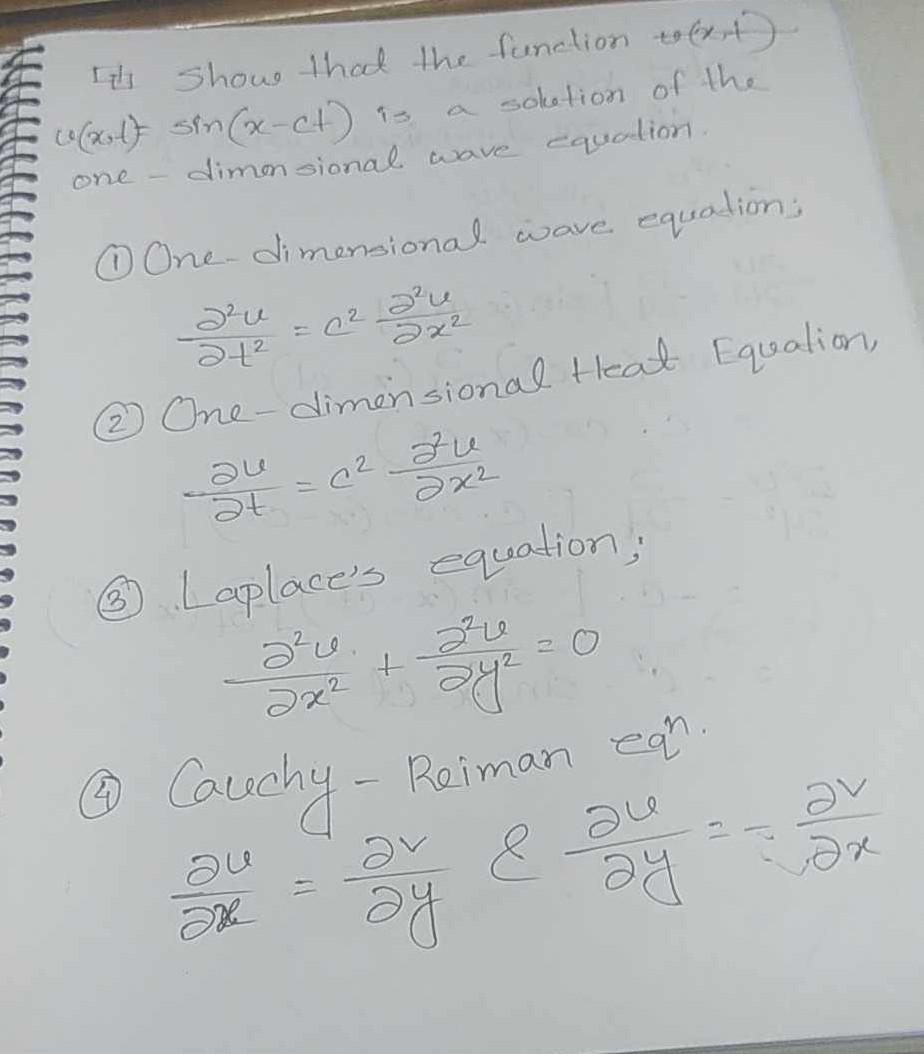 Show that the function
u(x,t)= sin(x-ct) is a solution of the
one-dimensional wave equation.
① One-dimensional wave equation;
∂²u/∂t² = c² ∂²u/∂x²
② One-dimensional Heat Equation,
∂u/∂t = c² ∂²u/∂x²
③ Laplace's equation;
∂²u/∂x² + ∂²u/∂y² = 0
④ Cauchy-Reiman eqⁿ.
∂u/∂x = ∂v/∂y & ∂u/∂y = - ∂v/∂x